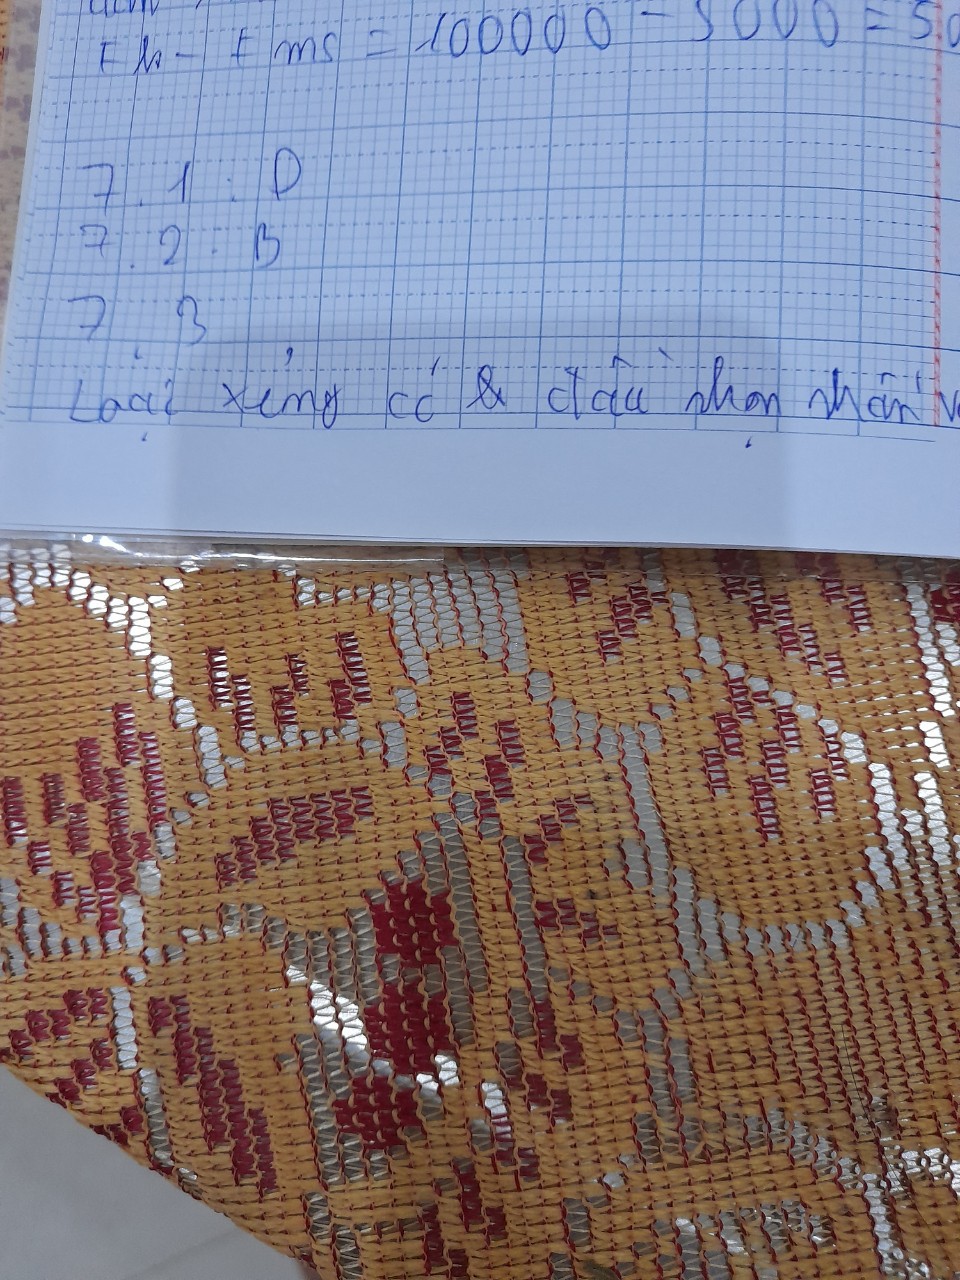 Fk - Fms = 100000 - 5000 =
7.1: D
7.2: B
7.3
Loại xẻng có đầu nhọn nhấn